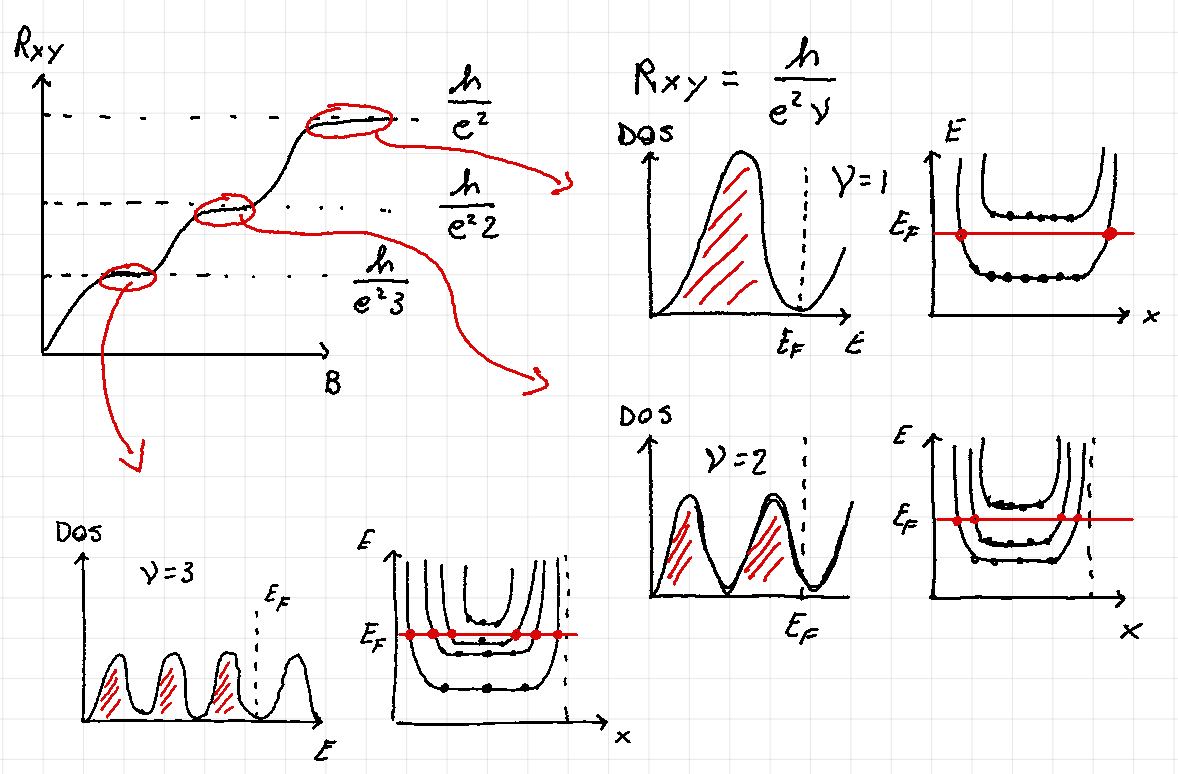 R_xy
h/e²
h/(e² 2)
h/(e² 3)
B
R_xy = h/(e² ν)
DOS
ν=1
E_F
E
E
E_F
x
DOS
ν=2
E_F
E
E_F
x
DOS
ν=3
E_F
E
E
E_F
x